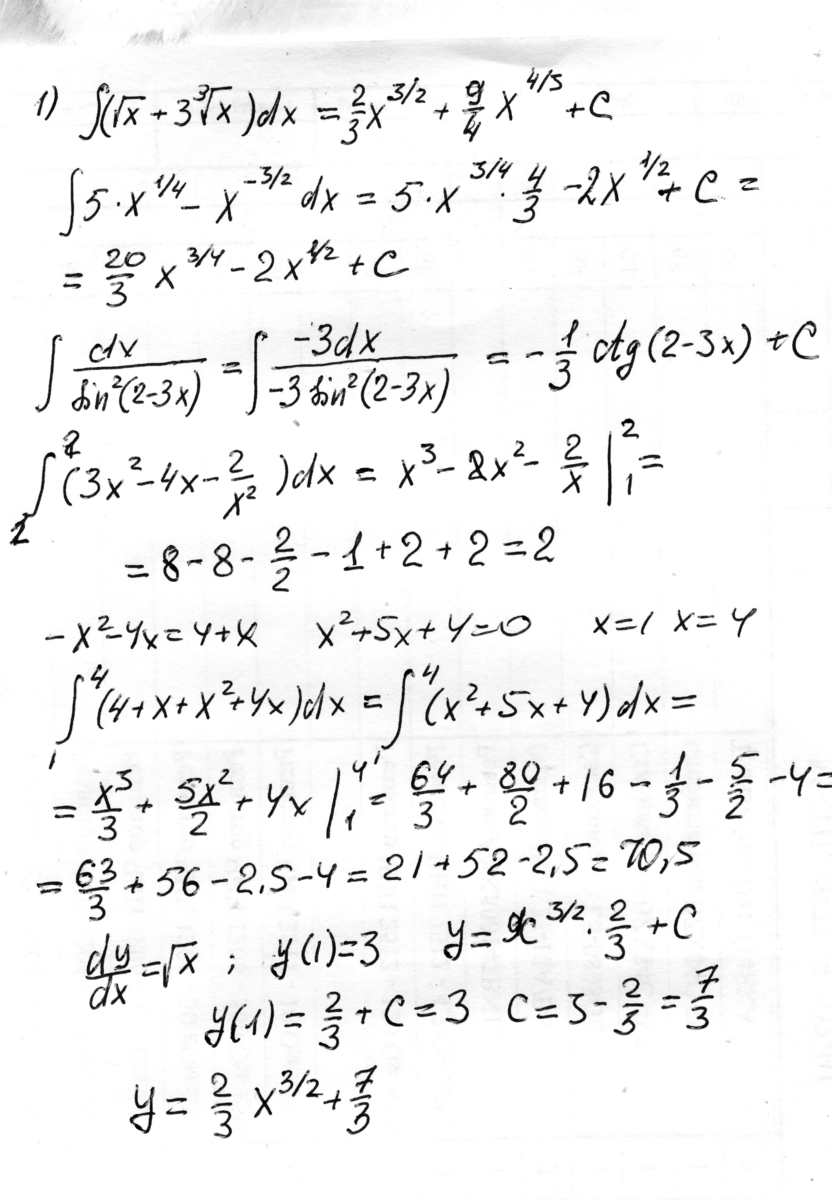 1) ∫(√x + 3∛x)dx = 2/3 x^3/2 + 9/4 x^4/3 + C
∫5·x^1/4 - x^-3/2 dx = 5·x^3/4 · 4/3 - 2x^1/2 + C =
= 20/3 x^3/4 - 2x^1/2 + C
∫ dx/sin²(2-3x) = ∫ -3dx/-3 sin²(2-3x) = - 1/3 ctg(2-3x) + C
∫₁² (3x² - 4x - 2/x²)dx = x³ - 2x² - 2/x |₁² =
= 8 - 8 - 2/2 - 1 + 2 + 2 = 2
-x² - 4x = 4 + x x² + 5x + 4 = 0 x = 1 x = 4
∫₁⁴ (4 + x + x² + 4x)dx = ∫₁⁴ (x² + 5x + 4)dx =
= x³/3 + 5x²/2 + 4x |₁⁴ = 64/3 + 80/2 + 16 - 1/3 - 5/2 - 4 =
= 63/3 + 56 - 2,5 - 4 = 21 + 52 - 2,5 = 70,5
dy/dx = √x ; y(1) = 3 y = x^3/2 · 2/3 + C
y(1) = 2/3 + C = 3 C = 3 - 2/3 = 7/3
y = 2/3 x^3/2 + 7/3